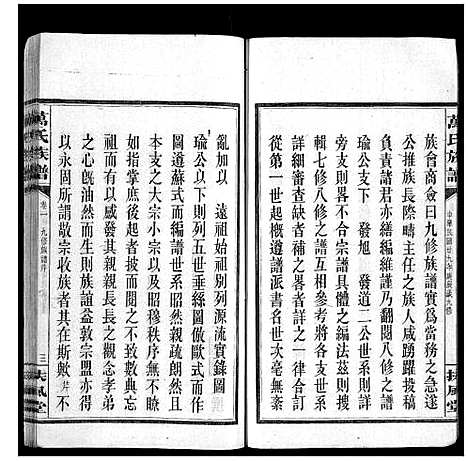 萬氏族譜
中華民國
九修
扶風堂
族會商僉曰九修族譜實爲當務之急僉
公推族長際疇主任之族人咸踴躍投功
負責諸君亦劃編維謹乃翻閱八修譜於
瑜公以下 發旭 發道二公世系則詳
旁支則略不合宗譜具體之編法茲則按
輯七修八修之於前將各支世系一一
詳細審查辦補者補之畧者詳之一律合訂
從第一世起徹底編次俾各世次毫無紊
亂加以 遠祖始祖別列源流實錄圖
瑜公以下則做五世垂絲圖倣歐式而作
圖遵蘇式而編譜世系親疏朗然而且
本支之大宗小宗以及昭穆秩序無不瞭
如指掌庶後起者披而閱之不致數典忘
祖而有以感發其親親長長之觀念孝弟
之心旣油然而生則族誼益敦宗盟亦得
以永固所謂敬宗收族者其在斯歟是爲
萬氏族譜
卷一 九修族譜序
三
扶風堂